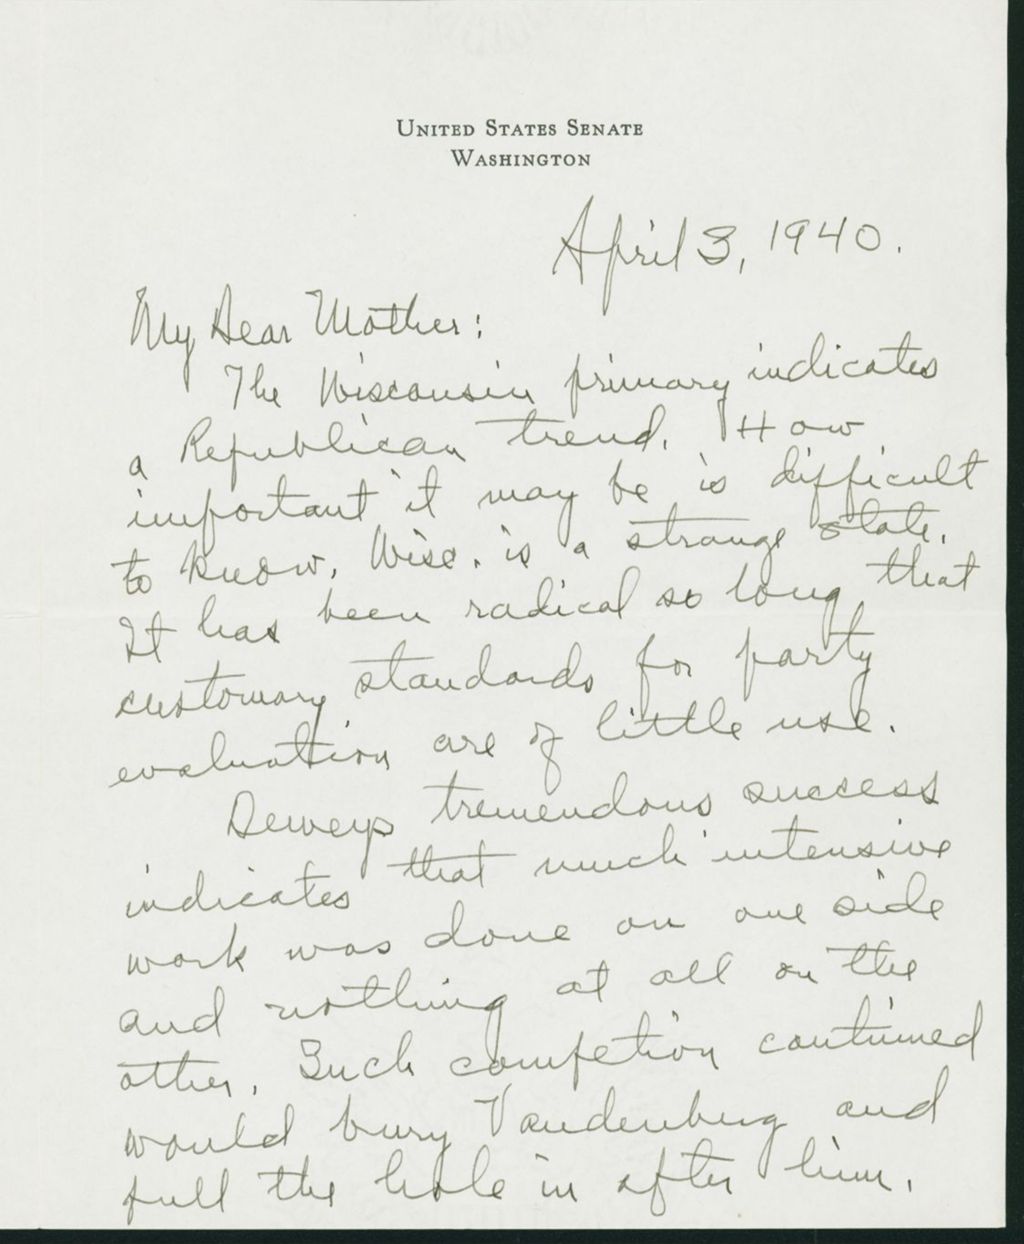 UNITED STATES SENATE
WASHINGTON
April 3, 1940.
My Dear Mother:
The Wisconsin primary indicates
a Republican trend. How
important it may be is difficult
to know. Wisc. is a strange state.
It has been radical so long that
customary standards for party
evaluation are of little use.
Deweys tremendous success
indicates that much intensive
work was done on one side
and nothing at all on the
other. Such competion continued
would bury Vandenburg and
pull the hole in after him.